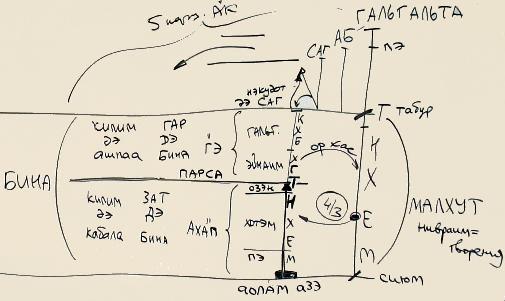 5 парц. А"К
ГАЛЬГАЛЬТА
АБ
САГ
ПЭ
НЭКУДОТ
ДЭ САГ
ТАБУР
КИЛИМ ГАР
ДЭ ДЭ
АШПАА БИНА
Г"Э
ГАЛЬГ.
ЭЙНАИМ
К
Х
Б
Х
Г
Т
ОР ХАС
Т
Н
Х
Е
М
БИНА
ПАРСА
ОЗЭН
КИЛИМ ЗАТ
ДЭ ДЭ
КАБАЛА БИНА
АХА"П
ХОТЭМ
ПЭ
Н
Х
Е
М
4/3
МАЛХУТ
НИВРАИМ=
ТВОРЕНИЯ
СИЮМ
ОЛАМ АЗЭ